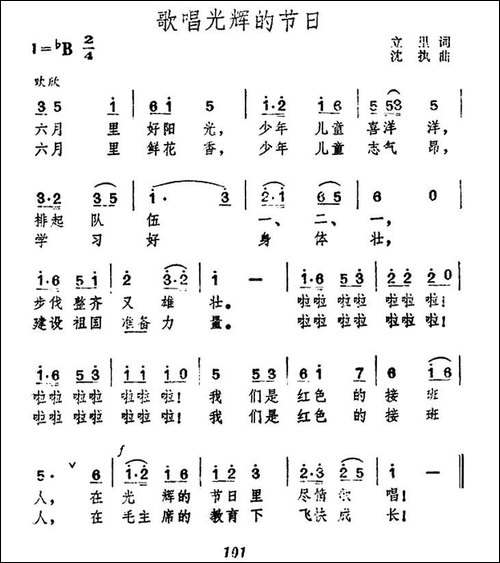 歌唱光辉的节日
1=♭B 2/4
立里词
沈执曲
欢欣
3 5 i 6 i 5 i·2 i 6 5 53 5
六月 里 好阳 光, 少年 儿童 喜洋 洋,
六月 里 鲜花 香, 少年 儿童 志气 昂,
3·2 3 5 1· 3 2·i 6 5 6 0
排起 队 伍 一、二、一,
学 习 好 身 体 壮,
i·6 5 i 2 3·2 i — i·6 5 3 2 2 2 0
步伐 整齐 又 雄 壮。 啦啦 啦啦 啦啦 啦!
建设 祖国 准备 力 量。 啦啦 啦啦 啦啦 啦!
i·6 5 3 i i i 0 5 5 3 6 i 7 6 i 6
啦啦 啦啦 啦啦 啦! 我 们是 红色 的 接 班
啦啦 啦啦 啦啦 啦! 我 们是 红色 的 接 班
f
5· ∨ 6 i·2 i 6 i·2 3 2·3 2 5 i —
人, 在 光 辉的 节日 里 尽情 唱!
人, 在 毛主 席的 教育 下 飞快 成 长!
191